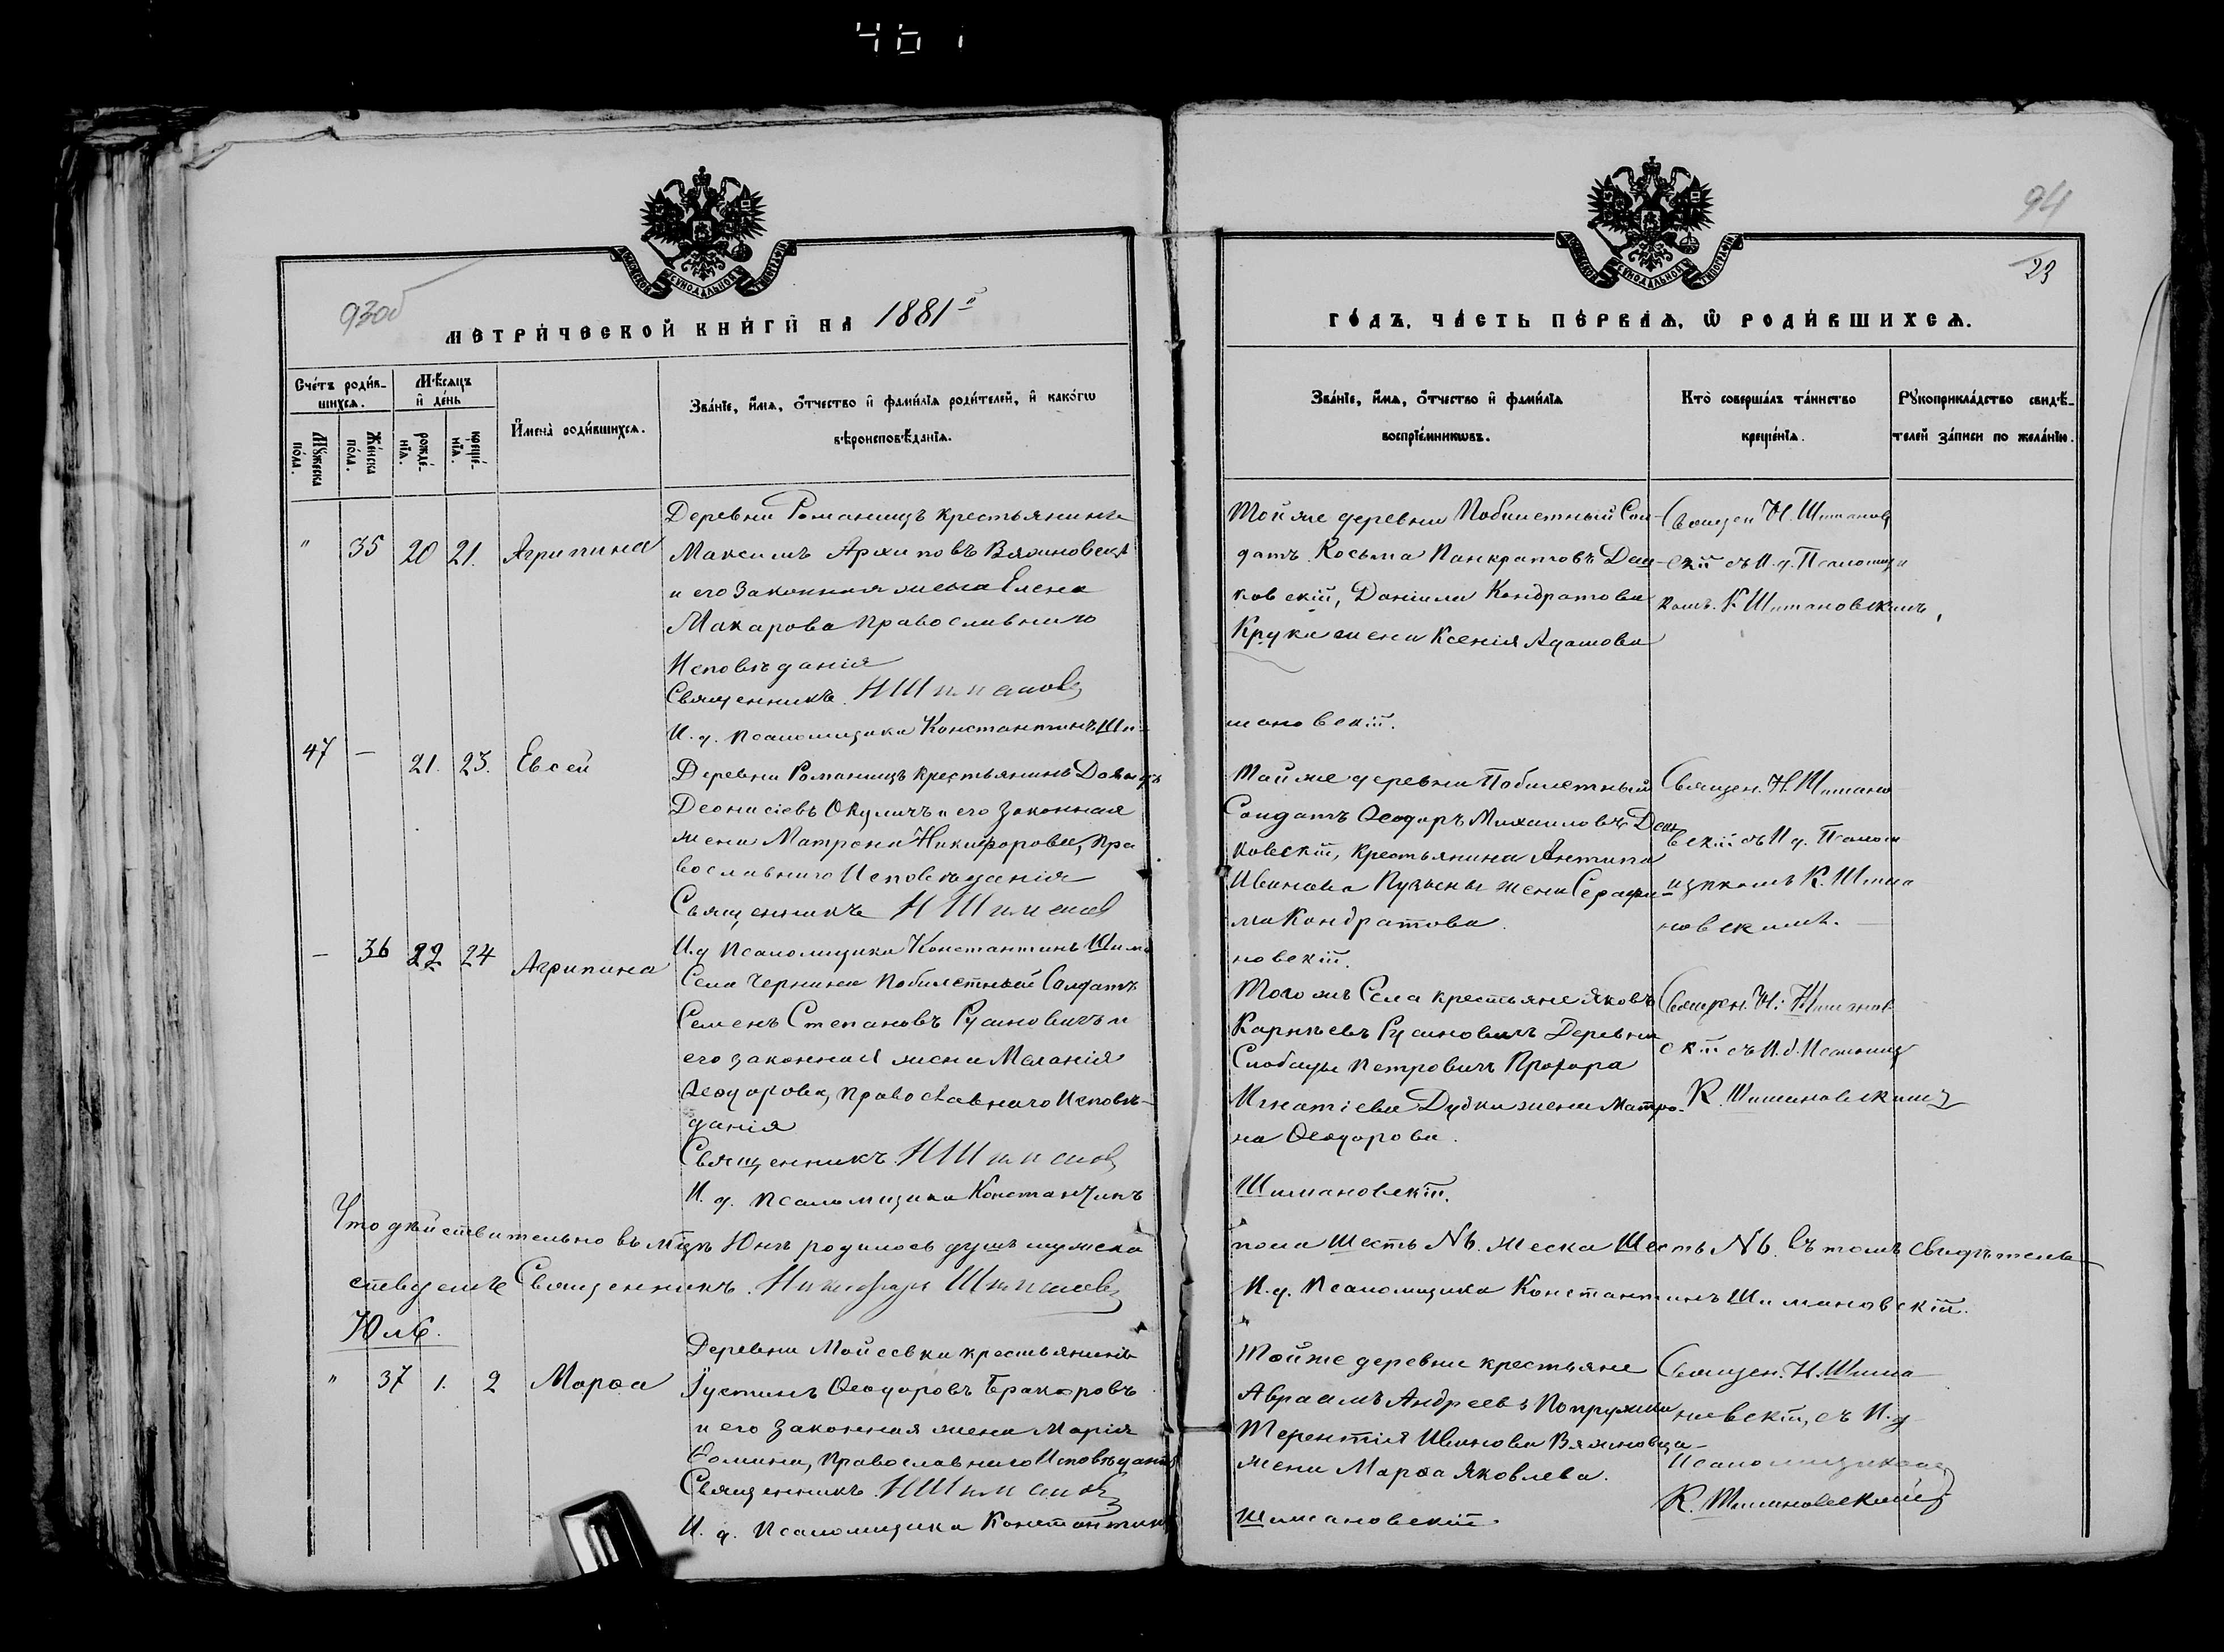 461
94
23
930б
МЕТРИЧЕСКОЙ КНИГИ НА 1881й
ГОДЪ, ЧАСТЬ ПЕРВАЯ, Ѡ РОДИВШИХСЯ.
Счетъ родив-
шихся.
Мѣсяцъ
и день
Мужеска пола.
Женска пола.
рожде-
нія.
креще-
нія.
Имена родившихся.
Званіе, имя, отчество и фамилія родителей, и какогѡ
вѣроисповѣданія.
Званіе, имя, отчество и фамилія
воспріемниковъ.
Кто совершалъ таинство
крещенія.
Рукоприкладство свидѣ-
телей записи по желанію.
" 35 20 21. Агрипина
Деревни Романищъ крестьянинъ
Максимъ Архиповъ
и его законная жена Елена
Макарова православнаго
Исповѣданія
Священникъ Н Шиманов
И. д. псаломщика Константинъ Ши-
Тойже деревни Побилетный Сол-
датъ Косьма Панкратовъ Даш-
ковскій, Даніила Кондратова
Крука жена Ксенія Адамова
мановскій.
Священ Н. Шиманов
скій съ И. д. Псаломщи
комъ К Шимановскимъ,
47 — 21. 23. Евсей
Деревни Романищъ крестьянинъ Давыдъ
Деонисіевъ Окуличъ и его законная
жена Матрона Никифорова, пра
вославнаго Исповѣданія
Священникъ Н Шиманов
И.д псаломщика Константинъ Шима
Тойже деревни Побилетный
Солдатъ Ѳеодоръ Михаиловъ Даш
ковскій, крестьянина Антипа
Иванова жена Серафи-
ма Кондратова.
новскій.
Священ. Н. Шимано
вскій съ И д. Псалом
щикомъ К. Шима
новскимъ. —
— 36 22 24 Агрипина
Села Чернина Побилетный Солдатъ
Семенъ Степановъ Русиновичъ и
его законная жена Меланія
Ѳеодорова, православнаго Исповѣ-
данія
Священникъ Н Шиманов
И. д. псаломщика Константинъ
Тогожъ Села крестьяне Яковъ
Карнѣевъ Русиновичъ Деревни
Слободы Петровичъ Прохора
Игнатіева Дудки жена Матро-
на Ѳеодорова.
Шимановскій.
Священ. Н. Шиманов
скій съ И.д. Псаломщ
К. Шимановскимъ
Что дѣйствительно въ мцѣ Юнѣ родилось душъ мужска
пола Шесть №6. женска Шесть №6. Въ томъ свидѣтель
ствуемъ Священникъ Никифоръ Шиманов
И.д. Псаломщика Константинъ Шимановскій.
Юль.
" 37 1. 2 Марѳа
Деревни Мойсевки крестьянинъ
Іустинъ Ѳеодоровъ
и его законная жена Марія
Ѳомина, православнаго Исповѣданія
Священникъ Н Шиманов
И. д. псаломщика Константинъ
Тойже деревни крестьяне
Авраамъ Андреевъ
Терентія Иванова
жена Марѳа Яковлева.
Шимановскій.
Священ. Н. Шима
новскій, съ И. д
Псаломщикомъ
К. Шимановскимъ